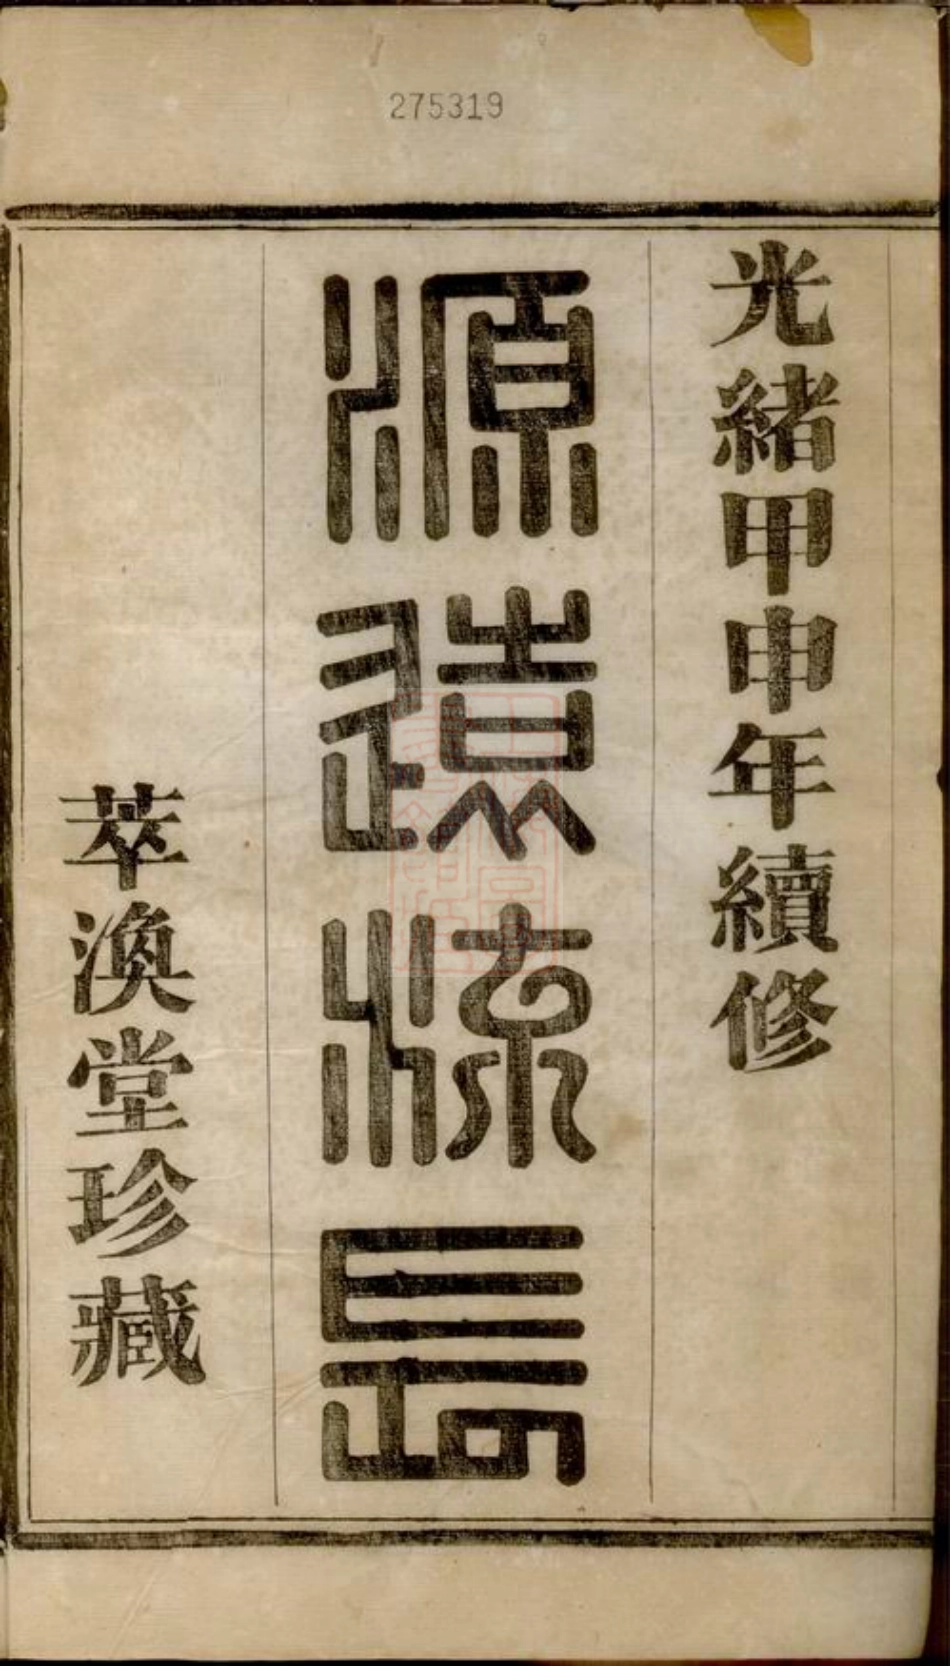 275319
光緒甲申年續修
源遠流長
萃渙堂珍藏